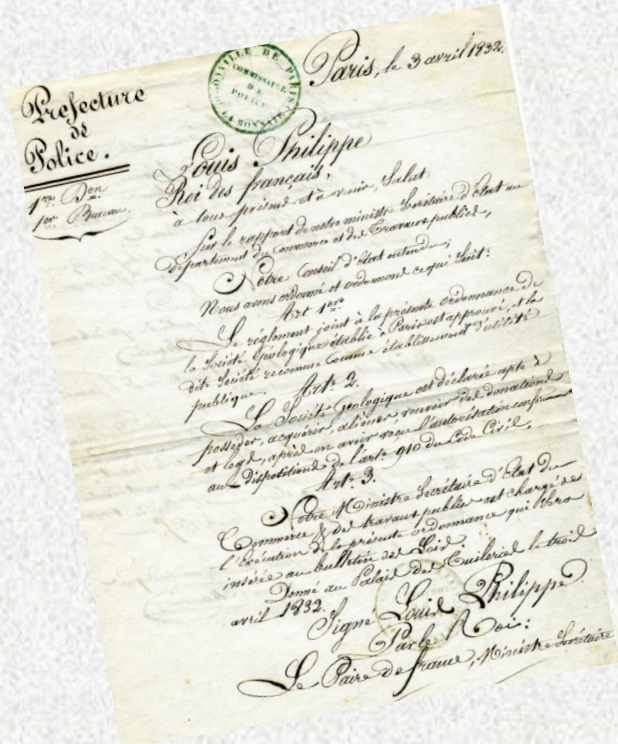 Paris, le 3 avril 1832.
VILLE DE PARIS
COMMISSAIRE
DE
POLICE
LA MONNAIE
Préfecture
de
Police.
1re Don
1er Bureau.
Louis Philippe
Roi des français,
à tous présens et à venir, Salut.
Sur le rapport de notre ministre Secrétaire d'État au
département du Commerce et des Travaux publics,
Notre Conseil d'État entendu;
Nous avons ordonné et ordonnons ce qui Suit:
Art 1er
Le réglement joint à la présente ordonnance de
la Société géologique établie à Paris est approuvé, et la
dite Société reconnue comme établissement d'utilité
publique.
Art. 2.
La Société Géologique est déclarée apte à
posséder, acquérir, aliéner, recevoir des donations
et legs, après en avoir reçu l'autorisation conformément
aux dispositions de l'art. 910 du Code Civil.
Art. 3.
Notre Ministre Secrétaire d'État du
Commerce & des travaux publics est chargé de
l'Exécution de la présente ordonnance qui Sera
insérée au bulletin des Lois.
Donné au Palais des Tuileries le trois
avril 1832.
Signé Louis Philippe
Par le Roi:
Le Paire de france, Ministre Secrétaire